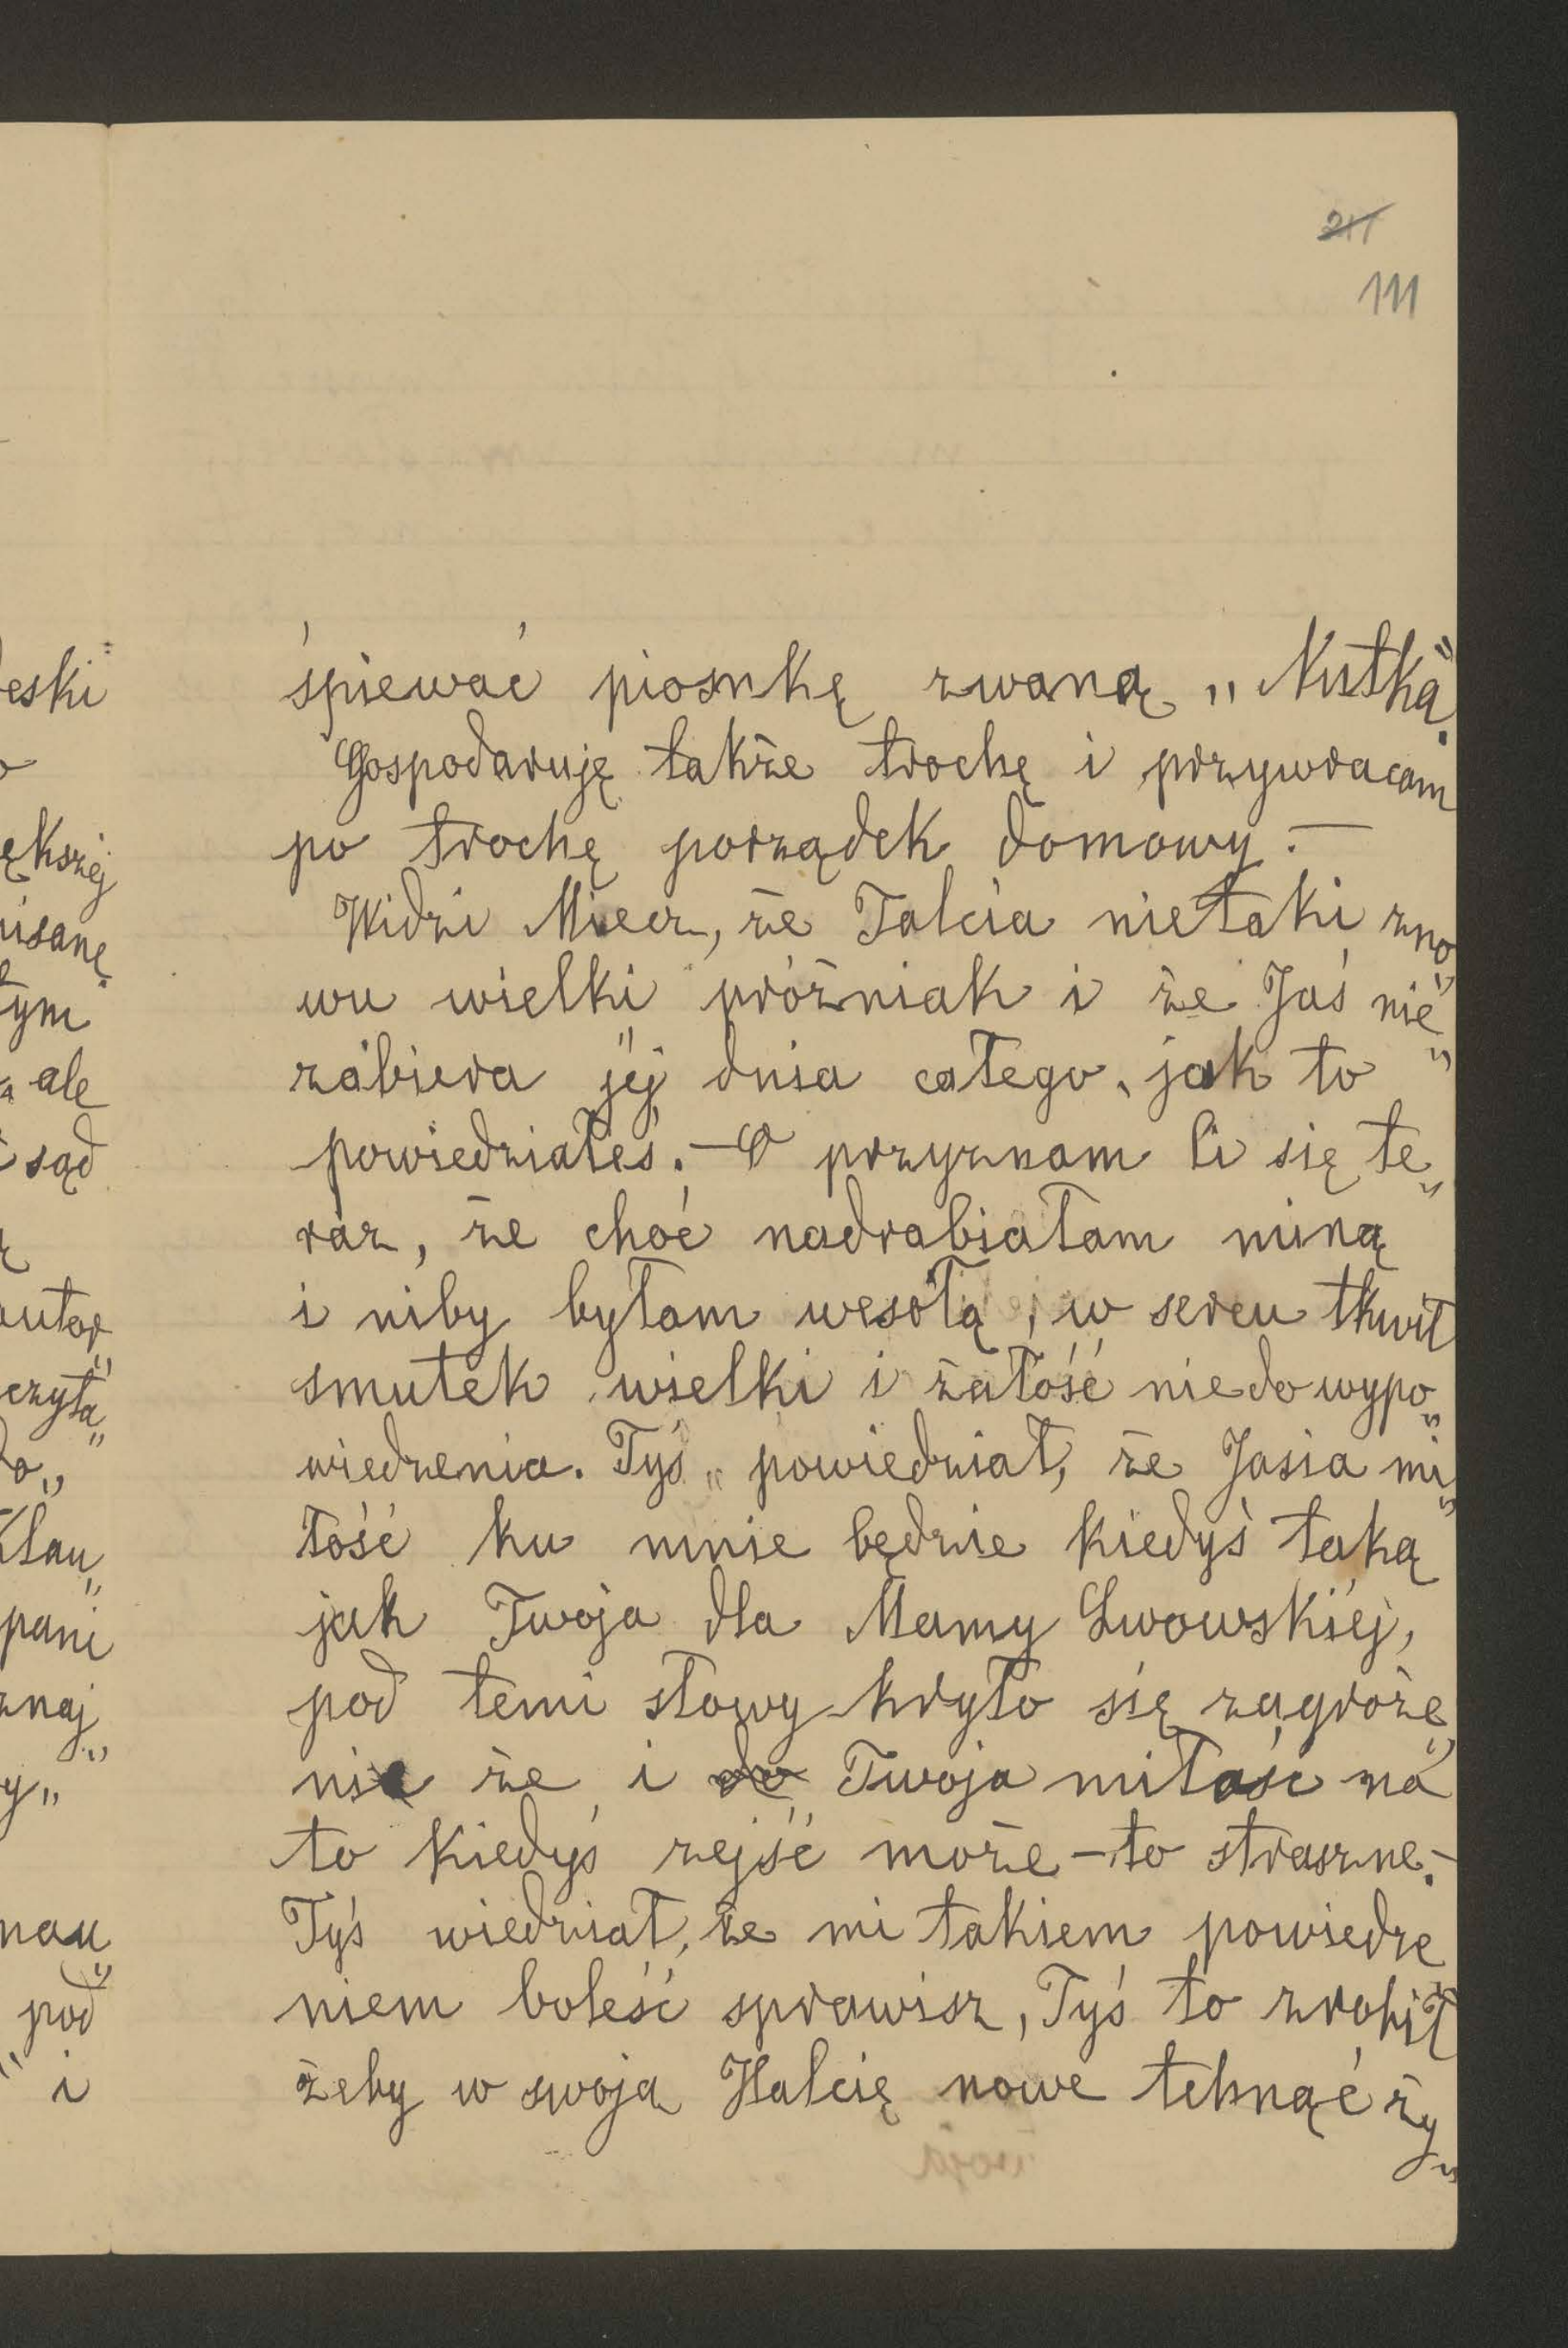 211
111
śpiewać piosnkę zwaną „Nutką".
Gospodaruję także trochę i przywracam
po trochę porządek domowy. —
Widzi Miecz, że Talcia nie taki zno„
wu wielki próżniak i że Jaś nie
zabiera jéj dnia całego, jak to
powiedziałeś. — O przyznam Ci się te„
raz, że choć nadrabiałam miną
i niby byłam wesołą, w sercu tkwił
smutek wielki i żałość niedowypo„
wiedzenia. Tyś powiedział, że Jasia mi„
łość ku mnie będzie kiedyś taką
jak Twoja dla Mamy Lwowskiéj,
pod temi słowy kryło się zagroże„
nie że i Twoja miłość na
to kiedyś zejść może — to straszne. —
Tyś wiedział, że mi takiem powiedze
niem boleść sprawisz, Tyś to zrobił
żeby w swoją Halcię nowe tchnąć ży„
eski
ększéj
isanę
tym
ale
sąd
autor
czyta„
do„
Klau„
pani
znaj„
y„
nau„
pod
i